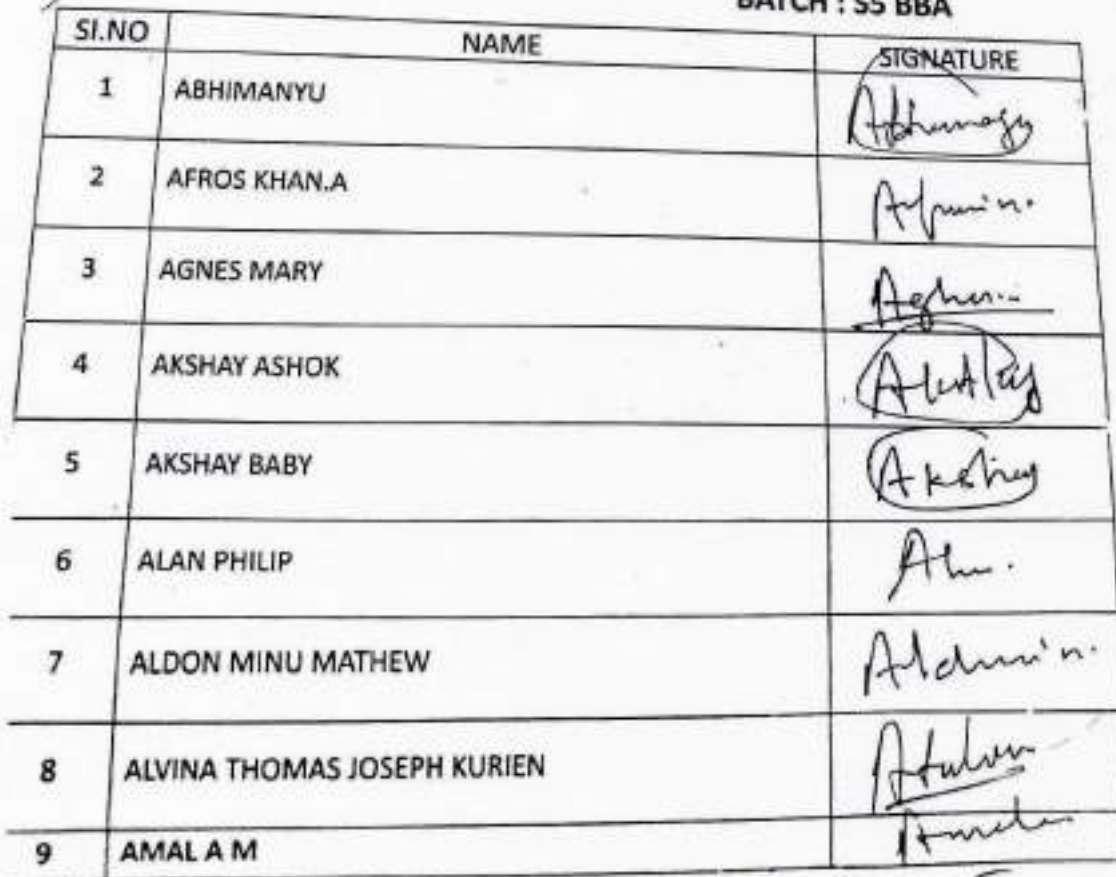 BATCH : S5 BBA
SI.NO NAME SIGNATURE
1 ABHIMANYU
2 AFROS KHAN.A
3 AGNES MARY
4 AKSHAY ASHOK
5 AKSHAY BABY Akshay
6 ALAN PHILIP
7 ALDON MINU MATHEW
8 ALVINA THOMAS JOSEPH KURIEN
9 AMAL A M